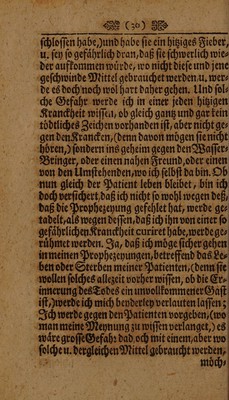 (30)
schlossen habe,) und habe sie ein hitziges Fieber,
u. sey so gefährlich dran, daß sie schwerlich wie-
der auffkommen würde, wo nicht diese und jene
geschwinde Mittel gebrauchet werden. u. wer-
de es doch noch wol hart daher gehen. Und sol-
che Gefahr werde ich in einer jeden hitzigen
Kranckheit wissen, ob gleich gantz und gar kein
tödtliches Zeichen vorhanden ist, aber nicht ge-
gen den Krancken, (denn davon mögen sie nicht
hören,) sondern ins geheim gegen den Wasser-
Bringer, oder einen nahen Freund, oder einen
von den Umstehenden, wo ich selbst da bin. Ob
nun gleich der Patient leben bleibet, bin ich
doch versichert, daß ich nicht so wohl wegen deß,
daß die Prophezeyung gefählet hat, werde ge-
tadelt, als wegen dessen, daß ich ihn von einer so
gefährlichen Kranckheit curiret habe, werde ge-
rühmet werden. Ja, daß ich möge sicher gehen
in meinen Prophezeyungen, betreffend das Le-
ben oder Sterben meiner Patienten, (denn sie
wollen solches allezeit vorher wissen, ob die Er-
innerung des Todes ein unwollkommener Gast
ist,) werde ich mich henderley verlauten lassen;
Ich werde gegen den Patienten vorgeben, (wo
man meine Meynung zu wissen verlanget,) es
wäre grosse Gefahr da, doch mit einem, aber wo
solche u. dergleichen Mittel gebraucht werden,
möch-